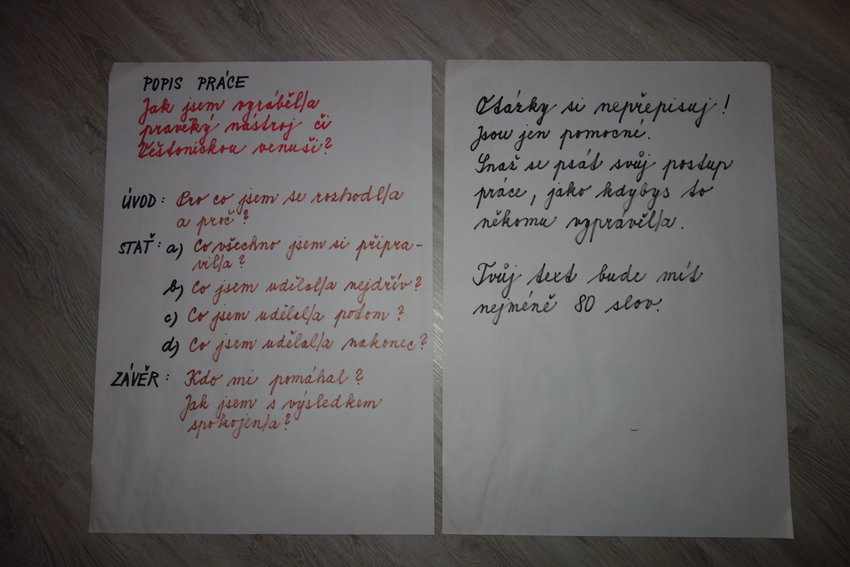 POPIS PRÁCE
Jak jsem vyráběl/a
pravěký nástroj či
Věstonickou venuši?
ÚVOD: Pro co jsem se rozhodl/a
a proč?
STAŤ: a) Co všechno jsem si připra-
vil/a?
b) Co jsem udělal/a nejdřív?
c) Co jsem udělal/a potom?
d) Co jsem udělal/a nakonec?
ZÁVĚR: Kdo mi pomáhal?
Jak jsem s výsledkem
spokojen/a?
Otázky si nepřepisuj!
Jsou jen pomocné.
Snaž se psát svůj postup
práce, jako kdybys to
někomu vyprávěl/a.
Tvůj text bude mít
nejméně 80 slov.